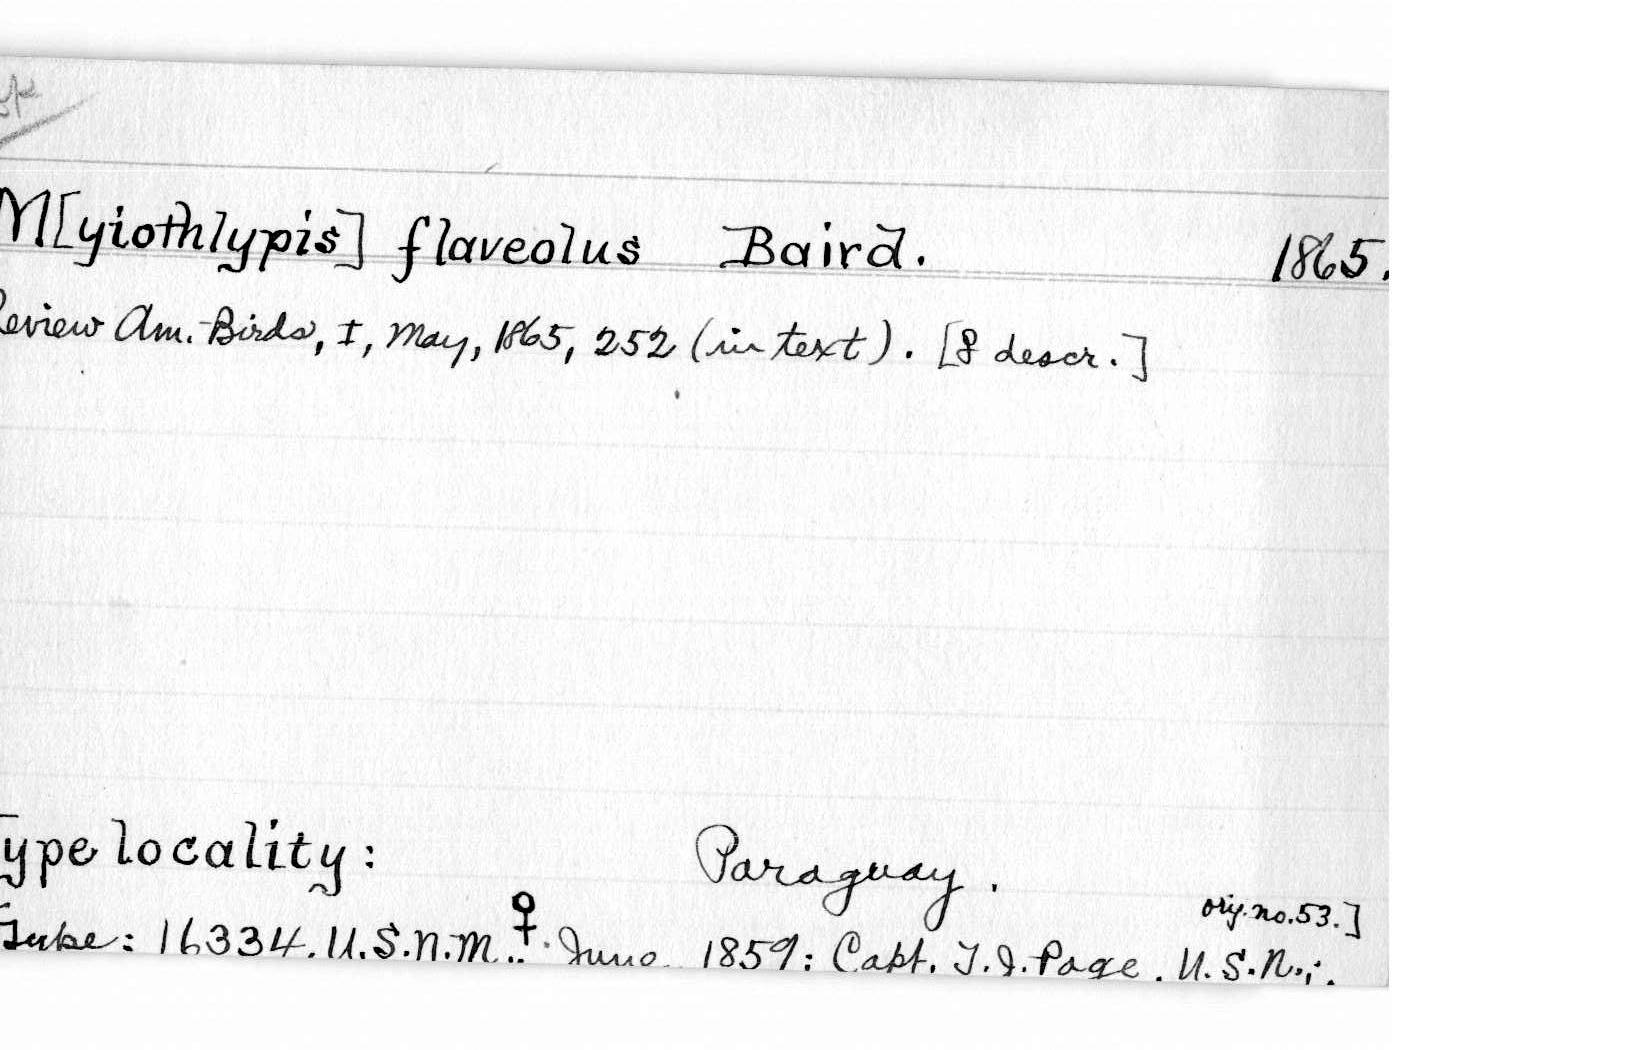 M[yiothlypis] flaveolus Baird. 1865.
Review Am. Birds, I, May, 1865, 252 (in text). [♀ descr.]
Type locality: Paraguay.
orig. no. 53.]
Type: 16334. U.S.N.M. ♀. June 1859: Capt. T.J. Page. U.S.N.;